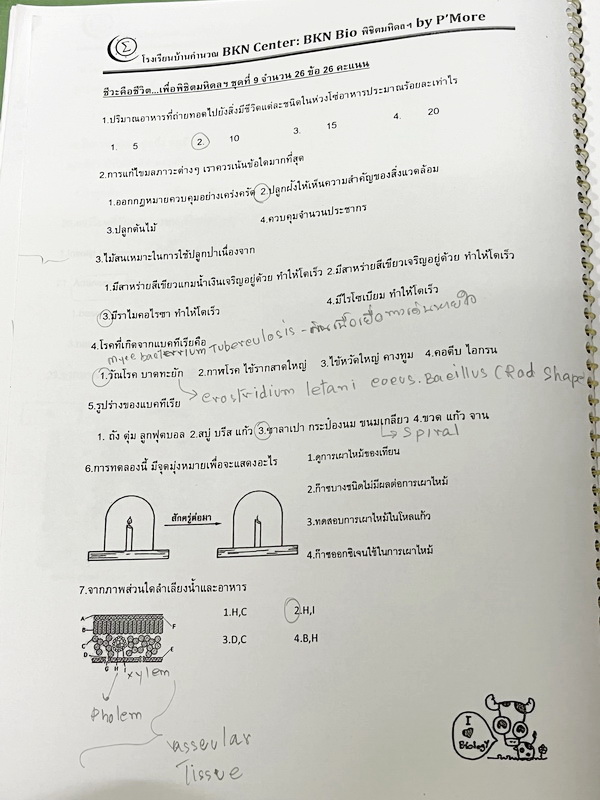 โรงเรียนบ้านคำนวณ BKN Center: BKN Bio พิชิตมหิดลฯ by P'More
ชีวะคือชีวิต...เพื่อพิชิตมหิดลฯ ชุดที่ 9 จำนวน 26 ข้อ 26 คะแนน
1.ปริมาณอาหารที่ถ่ายทอดไปยังสิ่งมีชีวิตแต่ละชนิดในห่วงโซ่อาหารประมาณร้อยละเท่าไร
1. 5 2. 10 3. 15 4. 20
2.การแก้ไขมลภาวะต่างๆ เราควรเน้นข้อใดมากที่สุด
1.ออกกฎหมายควบคุมอย่างเคร่งครัด 2.ปลูกฝังให้เห็นความสำคัญของสิ่งแวดล้อม
3.ปลูกต้นไม้ 4.ควบคุมจำนวนประชากร
3.ไม้สนเหมาะในการใช้ปลูกป่าเนื่องจาก
1.มีสาหร่ายสีเขียวแกมน้ำเงินเจริญอยู่ด้วย ทำให้โตเร็ว 2.มีสาหร่ายสีเขียวเจริญอยู่ด้วย ทำให้โตเร็ว
3.มีราไมคอไรซา ทำให้โตเร็ว 4.มีไรโซเบียม ทำให้โตเร็ว
4.โรคที่เกิดจากแบคทีเรียคือ
Tuberculosis -
1.วัณโรค บาดทะยัก 2.กาฬโรค ไข้รากสาดใหญ่ 3.ไข้หวัดใหญ่ คางทูม 4.คอตีบ ไอกรน
letani cocus. Bacillus (Rod Shape
5.รูปร่างของแบคทีเรีย
1. ถัง ตุ่ม ลูกฟุตบอล 2.สบู่ บรีส แก้ว 3.ซาลาเปา กระป๋องนม ขนมเกลียว 4.ขวด แก้ว จาน
Spiral
6.การทดลองนี้ มีจุดมุ่งหมายเพื่อจะแสดงอะไร
1.ดูการเผาไหม้ของเทียน
2.ก๊าซบางชนิดไม่มีผลต่อการเผาไหม้
สักครู่ต่อมา
3.ทดสอบการเผาไหม้ในโหลแก้ว
4.ก๊าซออกซิเจนใช้ในการเผาไหม้
7.จากภาพส่วนใดลำเลียงน้ำและอาหาร
1.H,C 2.H,I
3.D,C 4.B,H
A
B
C
D
F
E
G H I
xylem
Pholem
vasseular
Tissue
I
Biology